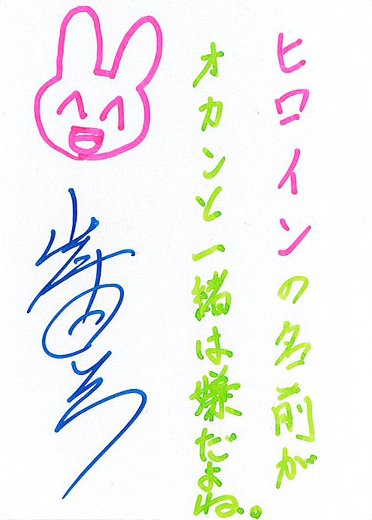 ヒロインの名前が
オカンと一緒は嫌だよね。